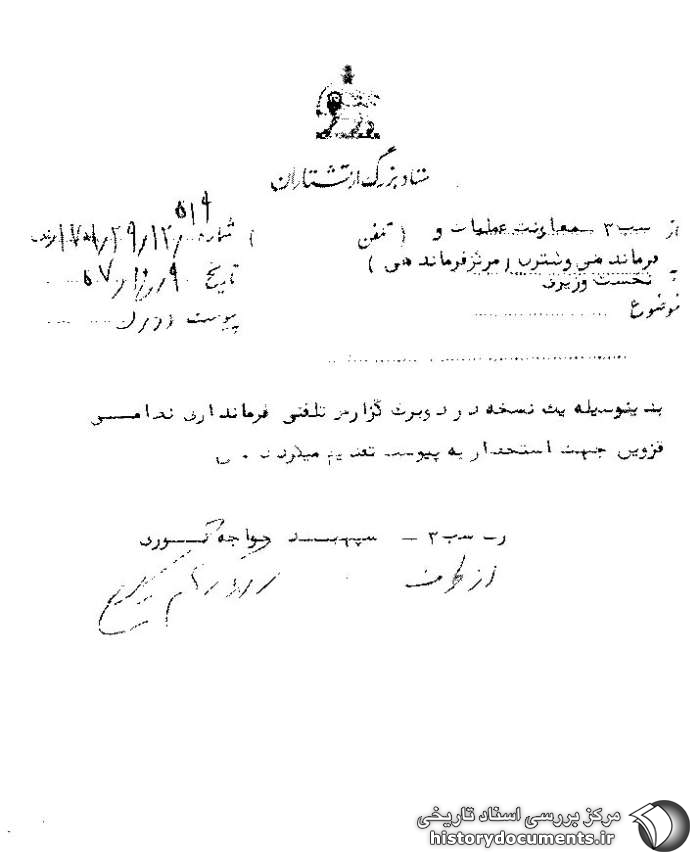 ستاد بزرگ ارتشتاران
از سب ۳ معاونت عملیات و ( تلفن )
فرماندهی و کنترل ( مرکز فرماندهی )
به نخست وزیری
موضوع
شماره
تاریخ
پیوست دو برگ
بدینوسیله یک نسخه در دو برگ گزارش تلفنی فرمانداری نظامی
قزوین جهت استحضار به پیوست تقدیم میگردد
ر سب ۳ – سپهبد خواجه نوری
از طرف
مرکز بررسی اسناد تاریخی
historydocuments.ir